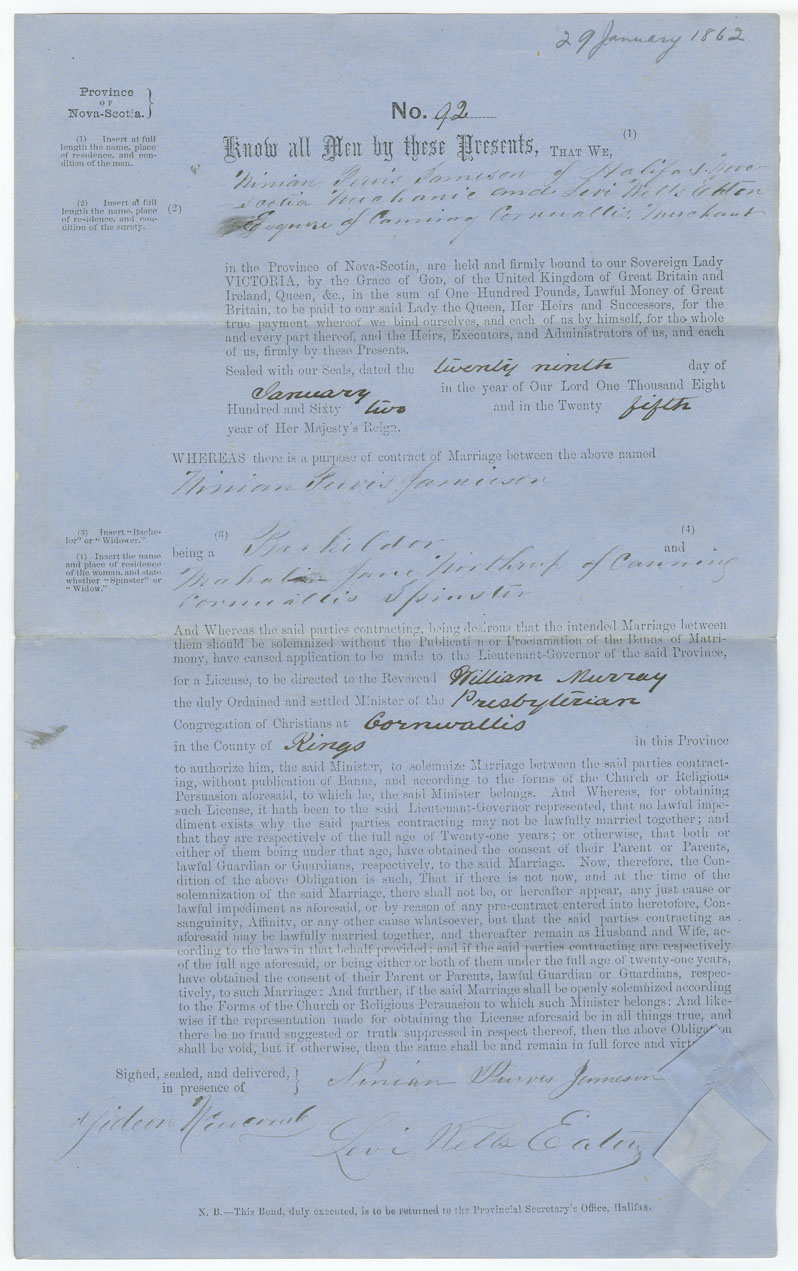 29 January 1862
Province
OF
Nova-Scotia.
No. 92
(1) Insert at full
length the name, place
of residence, and con-
dition of the man.
Know all Men by these Presents, THAT WE, (1)
Ninian Purvis Jameson of Halifax Nova
(2) Insert at full
length the name, place
of residence, and con-
dition of the surety.
(2)
Scotia Mechanic and Levi Wells Eaton
Esquire of Canning Cornwallis Merchant
in the Province of Nova-Scotia, are held and firmly bound to our Sovereign Lady
VICTORIA, by the Grace of GOD, of the United Kingdom of Great Britain and
Ireland, Queen, &c., in the sum of One Hundred Pounds, Lawful Money of Great
Britain, to be paid to our said Lady the Queen, Her Heirs and Successors, for the
true payment whereof we bind ourselves, and each of us by himself, for the whole
and every part thereof, and the Heirs, Executors, and Administrators of us, and each
of us, firmly by these Presents.
Sealed with our Seals, dated the twenty ninth day of
January in the year of Our Lord One Thousand Eight
Hundred and Sixty two and in the Twenty fifth
year of Her Majesty's Reign.
WHEREAS there is a purpose of contract of Marriage between the above named
Ninian Purvis Jamieson
(3) Insert "Bache-
lor" or "Widower."
(4) Insert the name
and place of residence
of the woman, and state
whether "Spinster" or
"Widow."
(3) (4)
being a Bacheldor and
Mahalia Jane Winthrup of Canning
Cornwallis Spinster
And Whereas the said parties contracting, being desirous that the intended Marriage between
them should be solemnized without the Publicati n or Proclamation of the Banns of Matri-
mony, have caused application to be made to the Lieutenant-Governor of the said Province,
for a License, to be directed to the Reverend William Murray
the duly Ordained and settled Minister of the Presbyterian
Congregation of Christians at Cornwallis
in the County of Kings in this Province
to authorize him, the said Minister, to solemnize Marriage between the said parties contract-
ing, without publication of Banns, and according to the forms of the Church or Religious
Persuasion aforesaid, to which he, the said Minister belongs. And Whereas, for obtaining
such License, it hath been to the said Lieutenant-Governor represented, that no lawful impe-
diment exists why the said parties contracting may not be lawfully married together; and
that they are respectively of the full age of Twenty-one years; or otherwise, that both or
either of them being under that age, have obtained the consent of their Parent or Parents,
lawful Guardian or Guardians, respectively, to the said Marriage. Now, therefore, the Con-
dition of the above Obligation is such, That if there is not now, and at the time of the
solemnization of the said Marriage, there shall not be, or hereafter appear, any just cause or
lawful impediment as aforesaid, or by reason of any pre-contract entered into heretofore, Con-
sanguinity, Affinity, or any other cause whatsoever, but that the said parties contracting as
aforesaid may be lawfully married together, and thereafter remain as Husband and Wife, ac-
cording to the laws in that behalf provided; and if the said parties contracting are respectively
of the full age aforesaid, or being either or both of them under the full age of twenty-one years,
have obtained the consent of their Parent or Parents, lawful Guardian or Guardians, respec-
tively, to such Marriage: And further, if the said Marriage shall be openly solemnized according
to the Forms of the Church or Religious Persuasion to which such Minister belongs: And like-
wise if the representation made for obtaining the License aforesaid be in all things true, and
there be no fraud suggested or truth suppressed in respect thereof, then the above Obligation
shall be void, but if otherwise, then the same shall be and remain in full force and virtu
Signed, sealed, and delivered,
in presence of
Ninian Purves Jameson
Gideon
Levi Wells Eaton
N. B.—This Bond, duly executed, is to be returned to the Provincial Secretary's Office, Halifax.